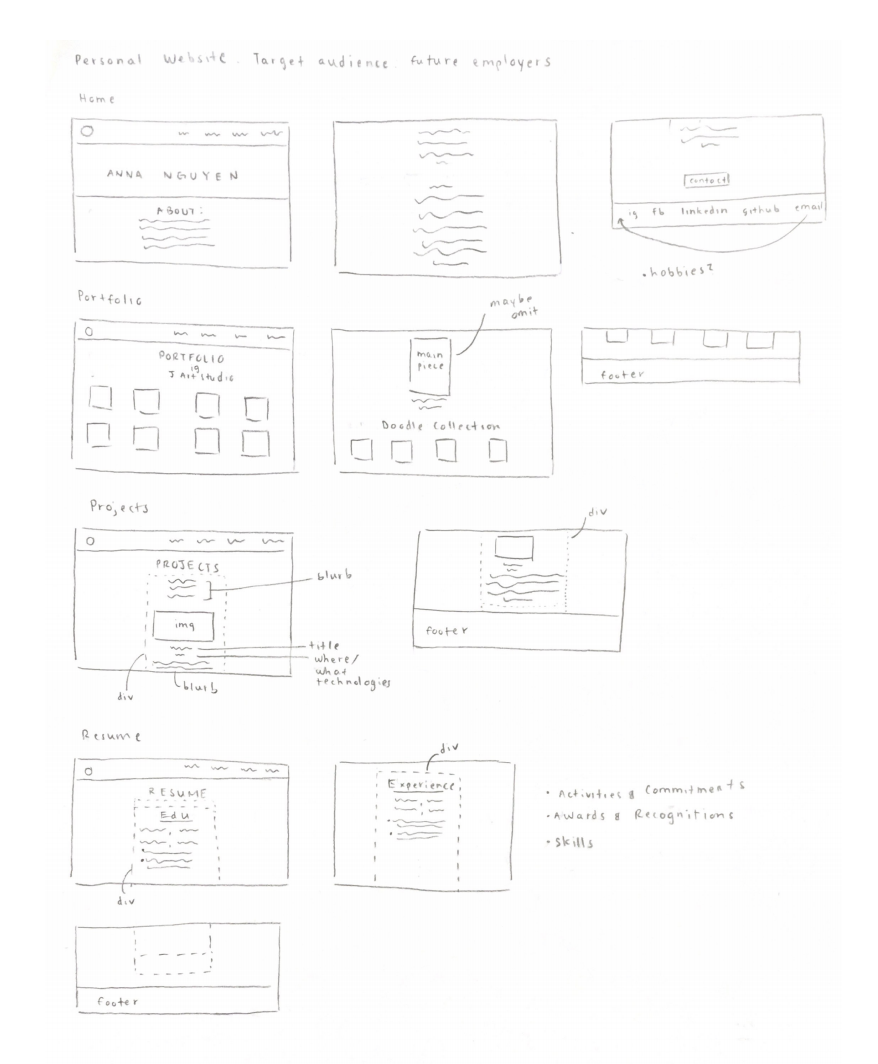 Personal Website. Target audience. future employers
Home
ANNA NGUYEN
ABOUT:
contact
ig fb linkedin github email
• hobbies?
Portfolio
PORTFOLIO
ig
J Art Studio
maybe
omit
main
piece
Doodle Collection
footer
Projects
PROJECTS
blurb
img
title
where/
what
technologies
blurb
div
div
footer
Resume
RESUME
Edu
div
div
Experience
• Activities & Commitments
• Awards & Recognitions
• Skills
footer